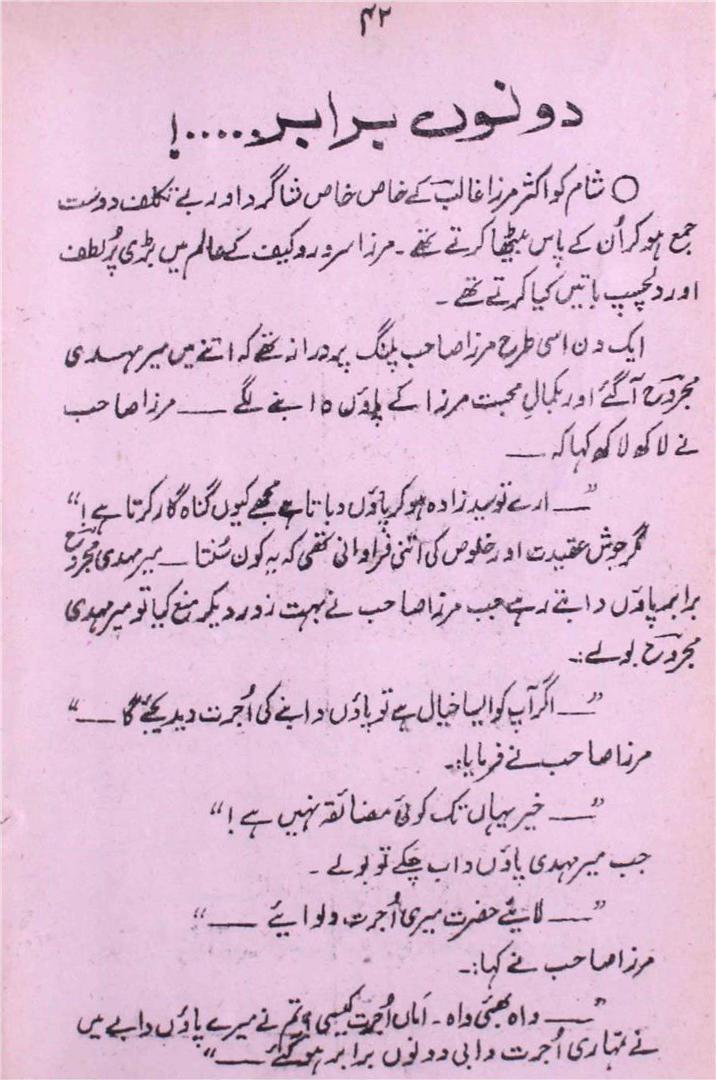 ۴۲
دونوں برابر.....!
○ شام کو اکثر مرزا غالبؔ کے خاص خاص شاگرد اور بے تکلف دوست
جمع ہو کر اُن کے پاس بیٹھا کرتے تھے۔ مرزا سرور و کیف کے عالم میں بڑی پُر لطف
اور دلچسپ باتیں کیا کرتے تھے۔
ایک دن اسی طرح مرزا صاحب پلنگ پر دراز تھے کہ اتنے میں میر مہدی
مجروحؔ آگئے اور بکمالِ محبت مرزا کے پاؤں دابنے لگے — مرزا صاحب
نے لاکھ لاکھ کہا کہ —
”— ارے تو سید زادہ ہو کر پاؤں دباتا ہے مجھے کیوں گناہ گار کرتا ہے!“
مگر جوش عقیدت اور خلوص کی اتنی فراوانی تھی کہ یہ کون سُنتا — میر مہدی مجروحؔ
برابر پاؤں دابتے رہے جب مرزا صاحب نے بہت زور دیکر منع کیا تو میر مہدی
مجروحؔ بولے:۔
”— اگر آپ کو ایسا خیال ہے تو پاؤں دابنے کی اُجرت دیدیجئے گا —“
مرزا صاحب نے فرمایا:۔
”— خیر یہاں تک کوئی مضائقہ نہیں ہے!“
جب میر مہدی پاؤں داب چکے تو بولے۔
”— لایئے حضرت میری اُجرت دلوایئے —“
مرزا صاحب نے کہا:۔
”— واہ بھئی واہ۔ اماں اُجرت کیسی؟ تم نے میرے پاؤں دابے میں
نے تمہاری اُجرت دابی دونوں برابر ہو گئے —“